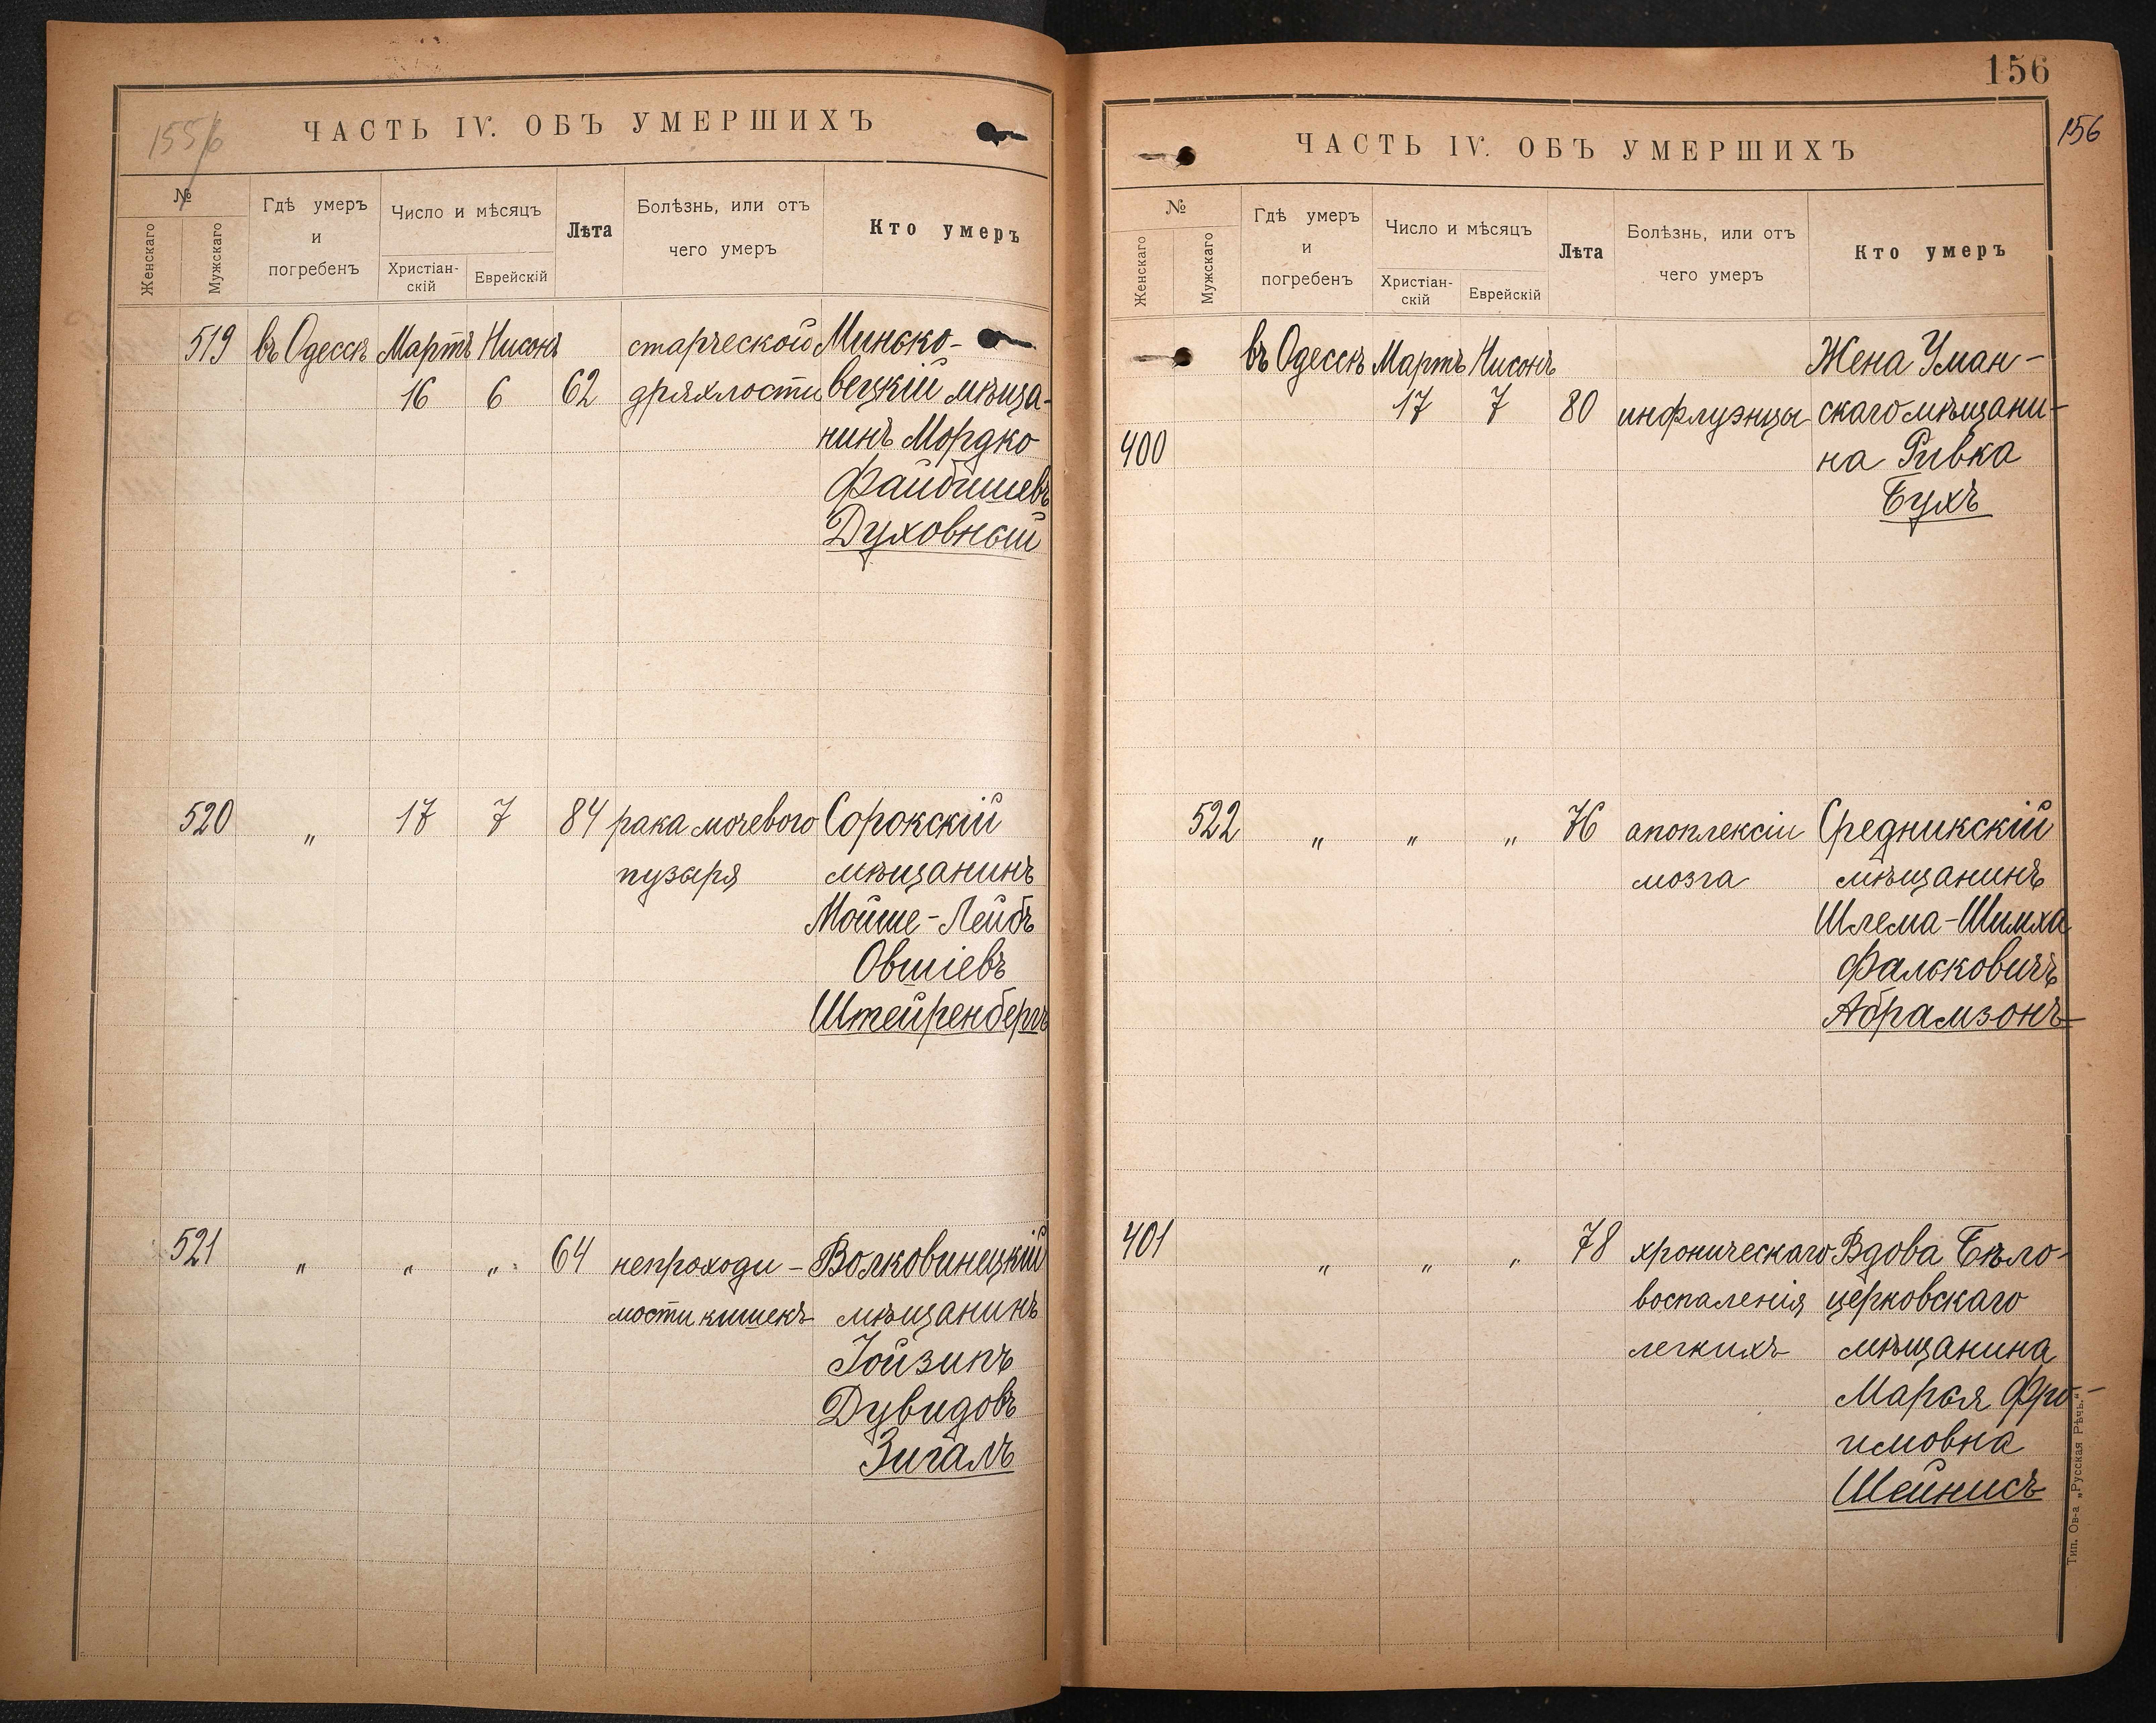 155/6
ЧАСТЬ IV. ОБЪ УМЕРШИХЪ
№
Женскаго
Мужскаго
Гдѣ умеръ
и
погребенъ
Число и мѣсяцъ
Христіан-
скій
Еврейскій
Лѣта
Болѣзнь, или отъ
чего умеръ
Кто умеръ
519 въ Одессѣ Мартъ Нисонъ старческой Минько-
16 6 62 дряхлости вецкій мѣща-
нинъ Мордко
Файбишевъ
Духовный
520 " 17 7 84 рака мочевого Сорокскій
пузыря мѣщанинъ
Мойше-Лейбъ
Овшіевъ
Штейренбергъ
521 " " " 64 непроходи- Волковинецкій
мости кишекъ мѣщанинъ
Іойзипъ
Дувидовъ
Зигалъ
156
156
ЧАСТЬ IV. ОБЪ УМЕРШИХЪ
№
Женскаго
Мужскаго
Гдѣ умеръ
и
погребенъ
Число и мѣсяцъ
Христіан-
скій
Еврейскій
Лѣта
Болѣзнь, или отъ
чего умеръ
Кто умеръ
въ Одессѣ Мартъ Нисонъ Жена Уман-
17 7 80 инфлуэнцы скаго мѣщани-
400 на Ривка
Бухъ
522 " " " 76 апоплексіи Средникскій
мозга мѣщанинъ
Шлема-Шимха
Фальковичъ
Абрамзонъ
401 " " " 78 хроническаго Вдова Бѣло-
воспаленія церковскаго
легкихъ мѣщанина
Марья Фро-
имовна
Шейнисъ
Тип. Ов-а „Русская Рѣчь."